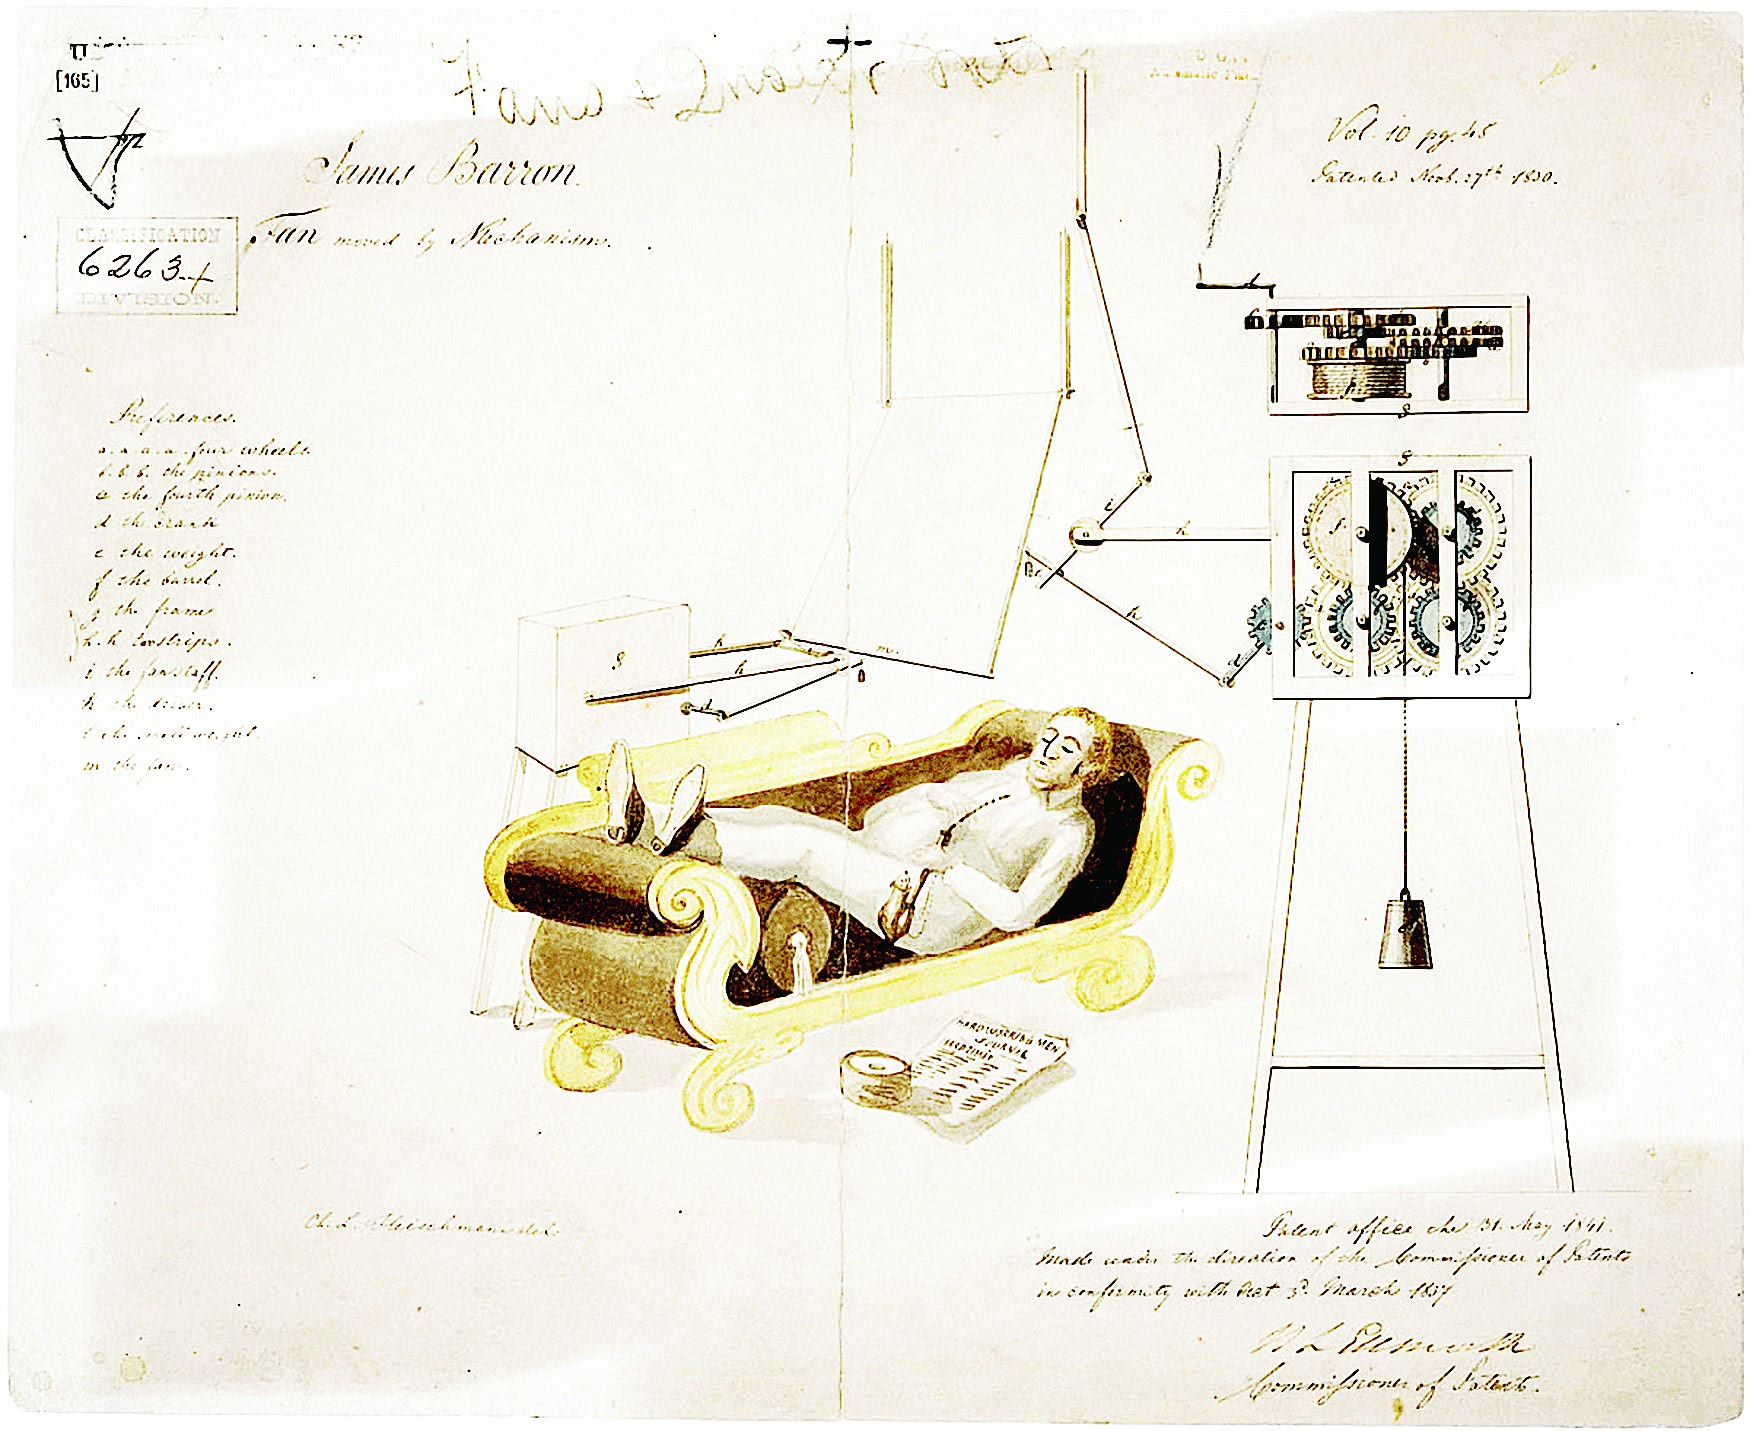 [165]
James Barron.
Fan moved by Mechanism.
CLASSIFICATION
6263
DIVISION.
Vol. 10 pg. 45
Patented Novb. 27th 1830.
References.
a. a. a. a. four wheels.
b. b. b. the pinions.
c the fourth pinion.
d the crank
e the weight.
f the barrel.
g the frame
h. h
i the fanstaff.
k the driver.
l the
m the fan.
g
g
g
f
h
i
k
k
h
h
m.
HARDWORKING MEN
JOURNAL
Ch. L. Fleischmann del.
Patent office the 31. May 1841.
Made under the direction of the Commissioner of Patents
in conformity with Act 3d. March 1837
Commissioner of Patents.